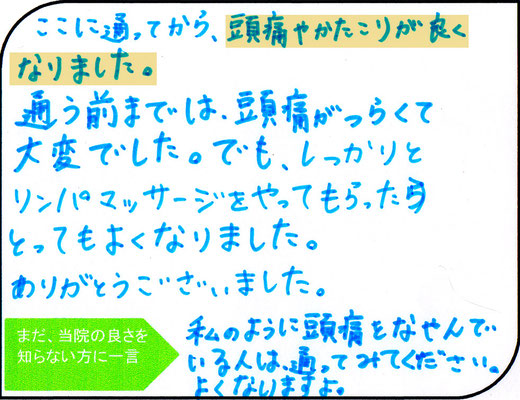 ここに通ってから、頭痛やかたこりが良く
なりました。
通う前までは、頭痛がつらくて
大変でした。でも、しっかりと
リンパマッサージをやってもらったら
とってもよくなりました。
ありがとうございました。
まだ、当院の良さを
知らない方に一言
私のように頭痛をなやんで
いる人は、通ってみてください。
よくなりますよ。